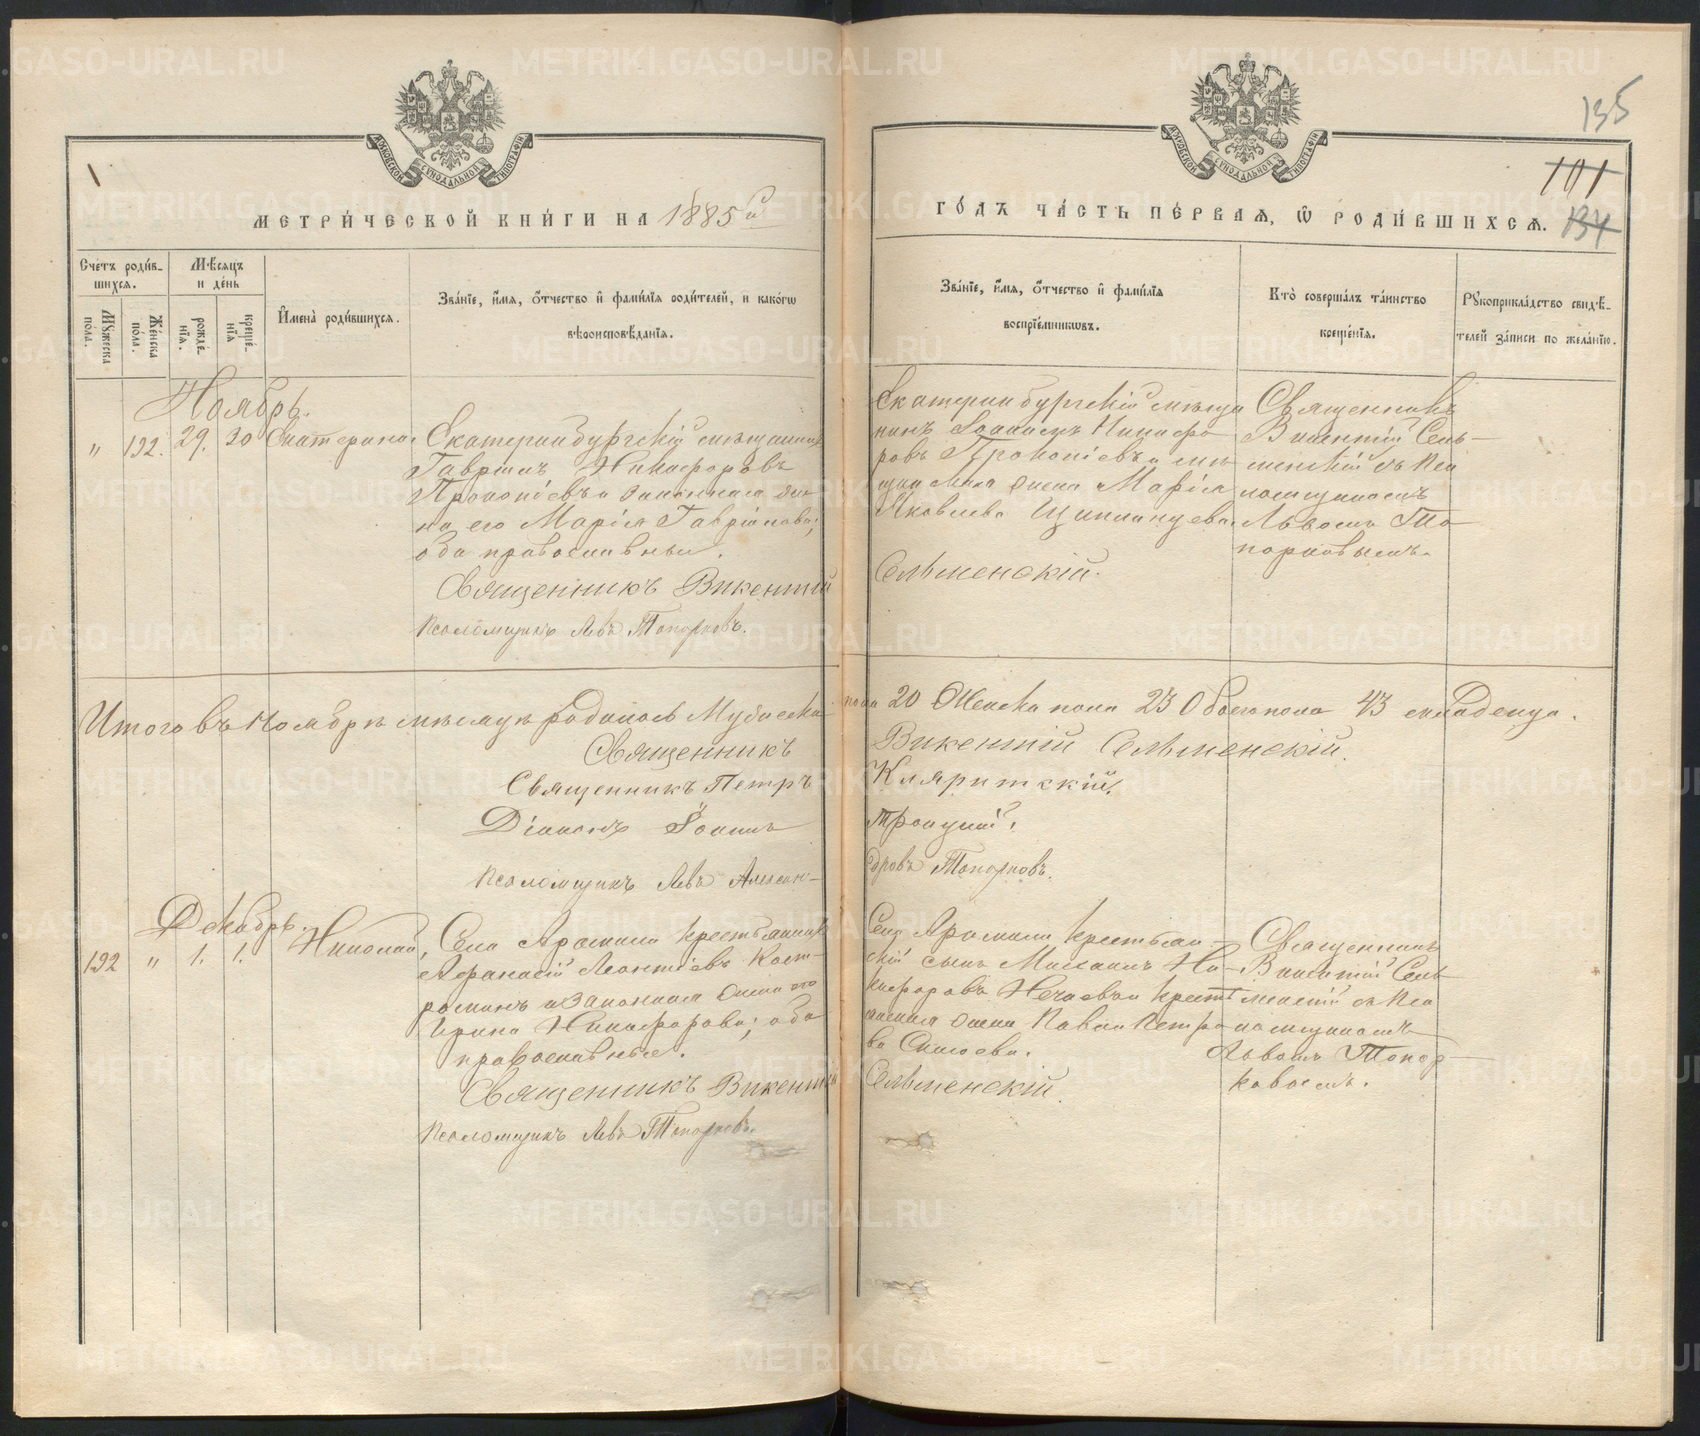 135
101
134
1
МЕТРИ́ЧЕСКОЙ КНИ́ГИ НА 1885й
ГО́ДЪ ЧА́СТЬ ПЕ́РВАЯ, Ѽ РОДИ́ВШИХСЯ.
Сче́тъ роди́в-
шихся.
Му́жеска
по́ла.
Же́нска
по́ла.
Мѣ́сяцъ
и де́нь
рожде́-
нїя.
креще́-
нїя
И҆мена̀ роди́вшихся.
Зва́нїе, и҆́мя, ѻ҆́тчество и҆ фами́лїя роди́телей, и како́гѡ
вѣроисповѣ́данїя.
Зва́нїе, и҆́мя, ѻ҆́тчество и҆ фами́лїя
воспрїе́мникѡвъ.
Кто̀ соверша́лъ та́инство
креще́нїя.
Рꙋкоприкла́дство свидѣ́-
телей за́писи по жела́нїю.
Ноябрь.
" 132. 29. 30 Екатерина.
Екатеринбургскій мѣщанинъ
Гавріилъ Никифоровъ
Прокопіевъ и законная же-
на его Марія Гавріилова;
оба православные.
Священникъ Викентій
Псаломщикъ Левъ Топорковъ.
Екатеринбургскій мѣща
нинъ Іоаннъ Никифо
ровъ Прокопіевъ и мѣ
жена Марія
Яковлева
Сельменскій.
Священникъ
Викентій Сель-
менскій съ Пса
ломщикомъ
Львомъ То-
порковымъ.
Итого въ Ноябрѣ мѣсяцѣ родилось Мужеска
пола 20 Женска пола 23 Обоего пола 43 младенца.
Священникъ
Викентій Сельменскій.
Священникъ Петръ
Кляритскій.
Діаконъ Іоаннъ
Троицкій.
Псаломщикъ Левъ Алексан-
дровъ Топорковъ.
Декабрь.
192 " 1. 1. Николай,
Села Арамили крестьянинъ
Афанасій Леонтіевъ Кост-
роминъ и законная жена его
Ирина Никифорова; оба
православные.
Священникъ Викентій
Псаломщикъ Левъ Топорковъ.
Села Арамили крестьян-
скій сынъ Михаилъ Ни-
кифоровъ Нечаевъ и крест
жена Петро
ва
Сельменскій.
Священникъ
Викентій Сель-
менскій съ Пса
ломщикомъ
Львомъ Топор-
ковымъ.
METRIKI.GASO-URAL.RU